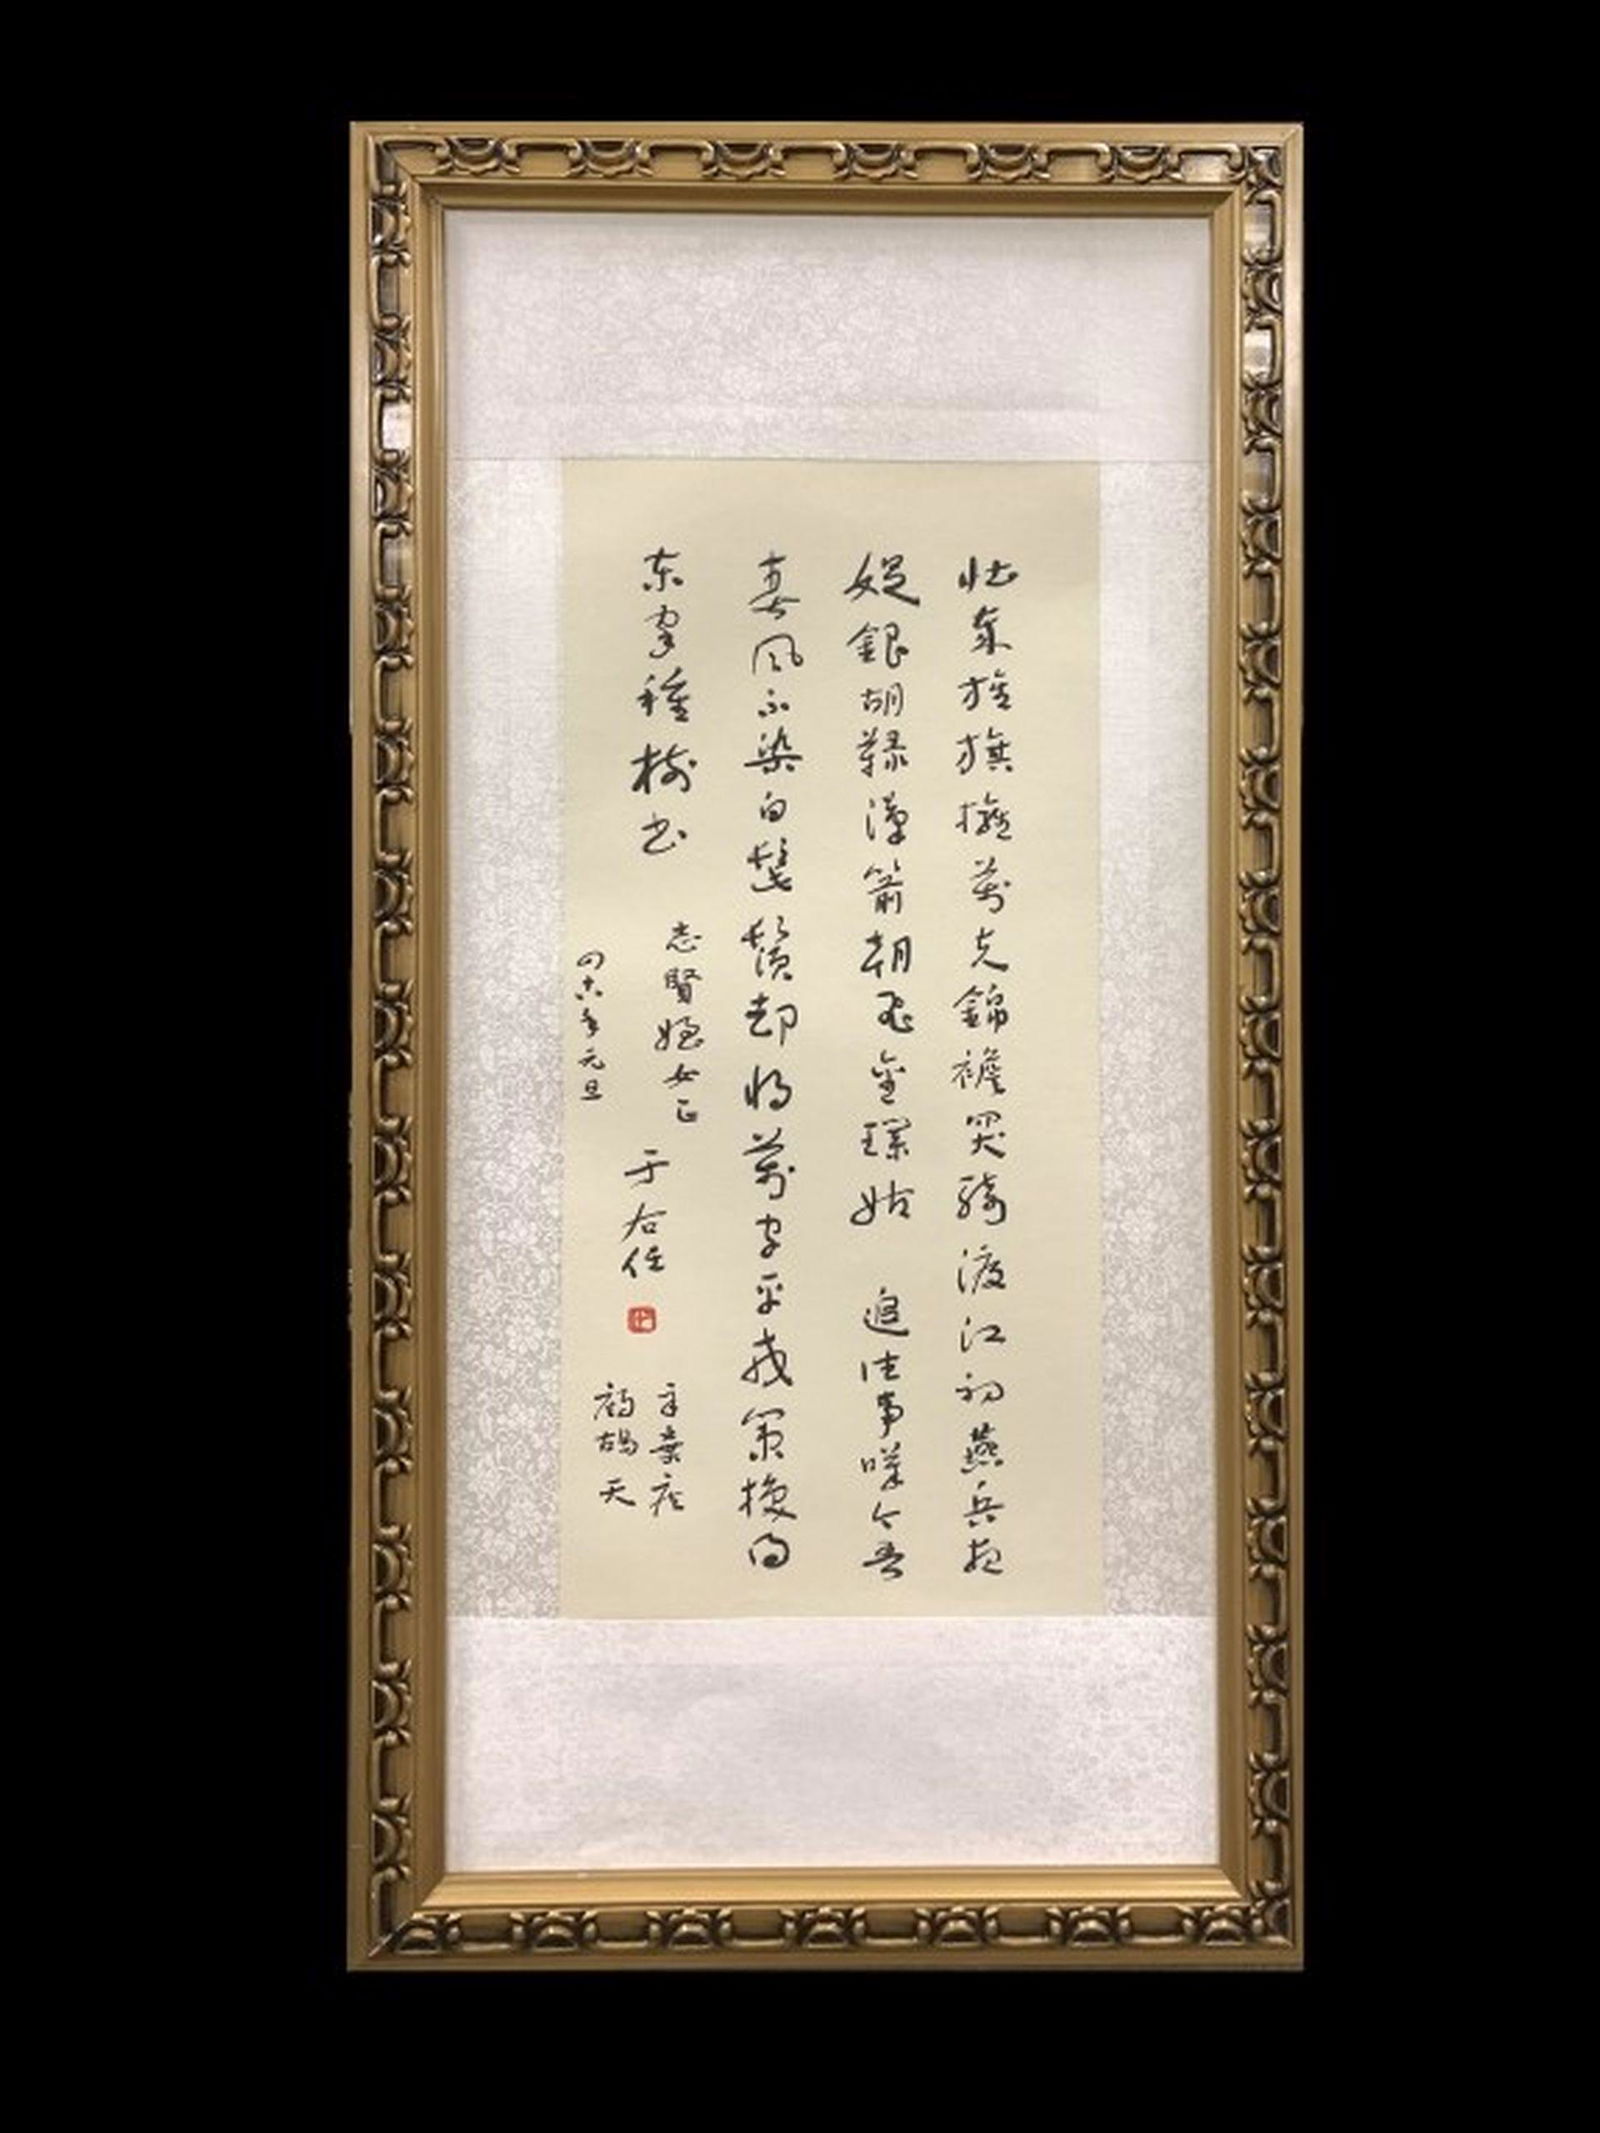 壯歲旌旗擁萬夫錦襜突騎渡江初燕兵夜
娖銀胡䩮漢箭朝飛金璞姑 追往事嘆今吾
春風不染白髭鬚却將萬字平戎策換得
東家種樹書
志賢姪女正
四十六年元旦
于右任
辛棄疾
鷓鴣天